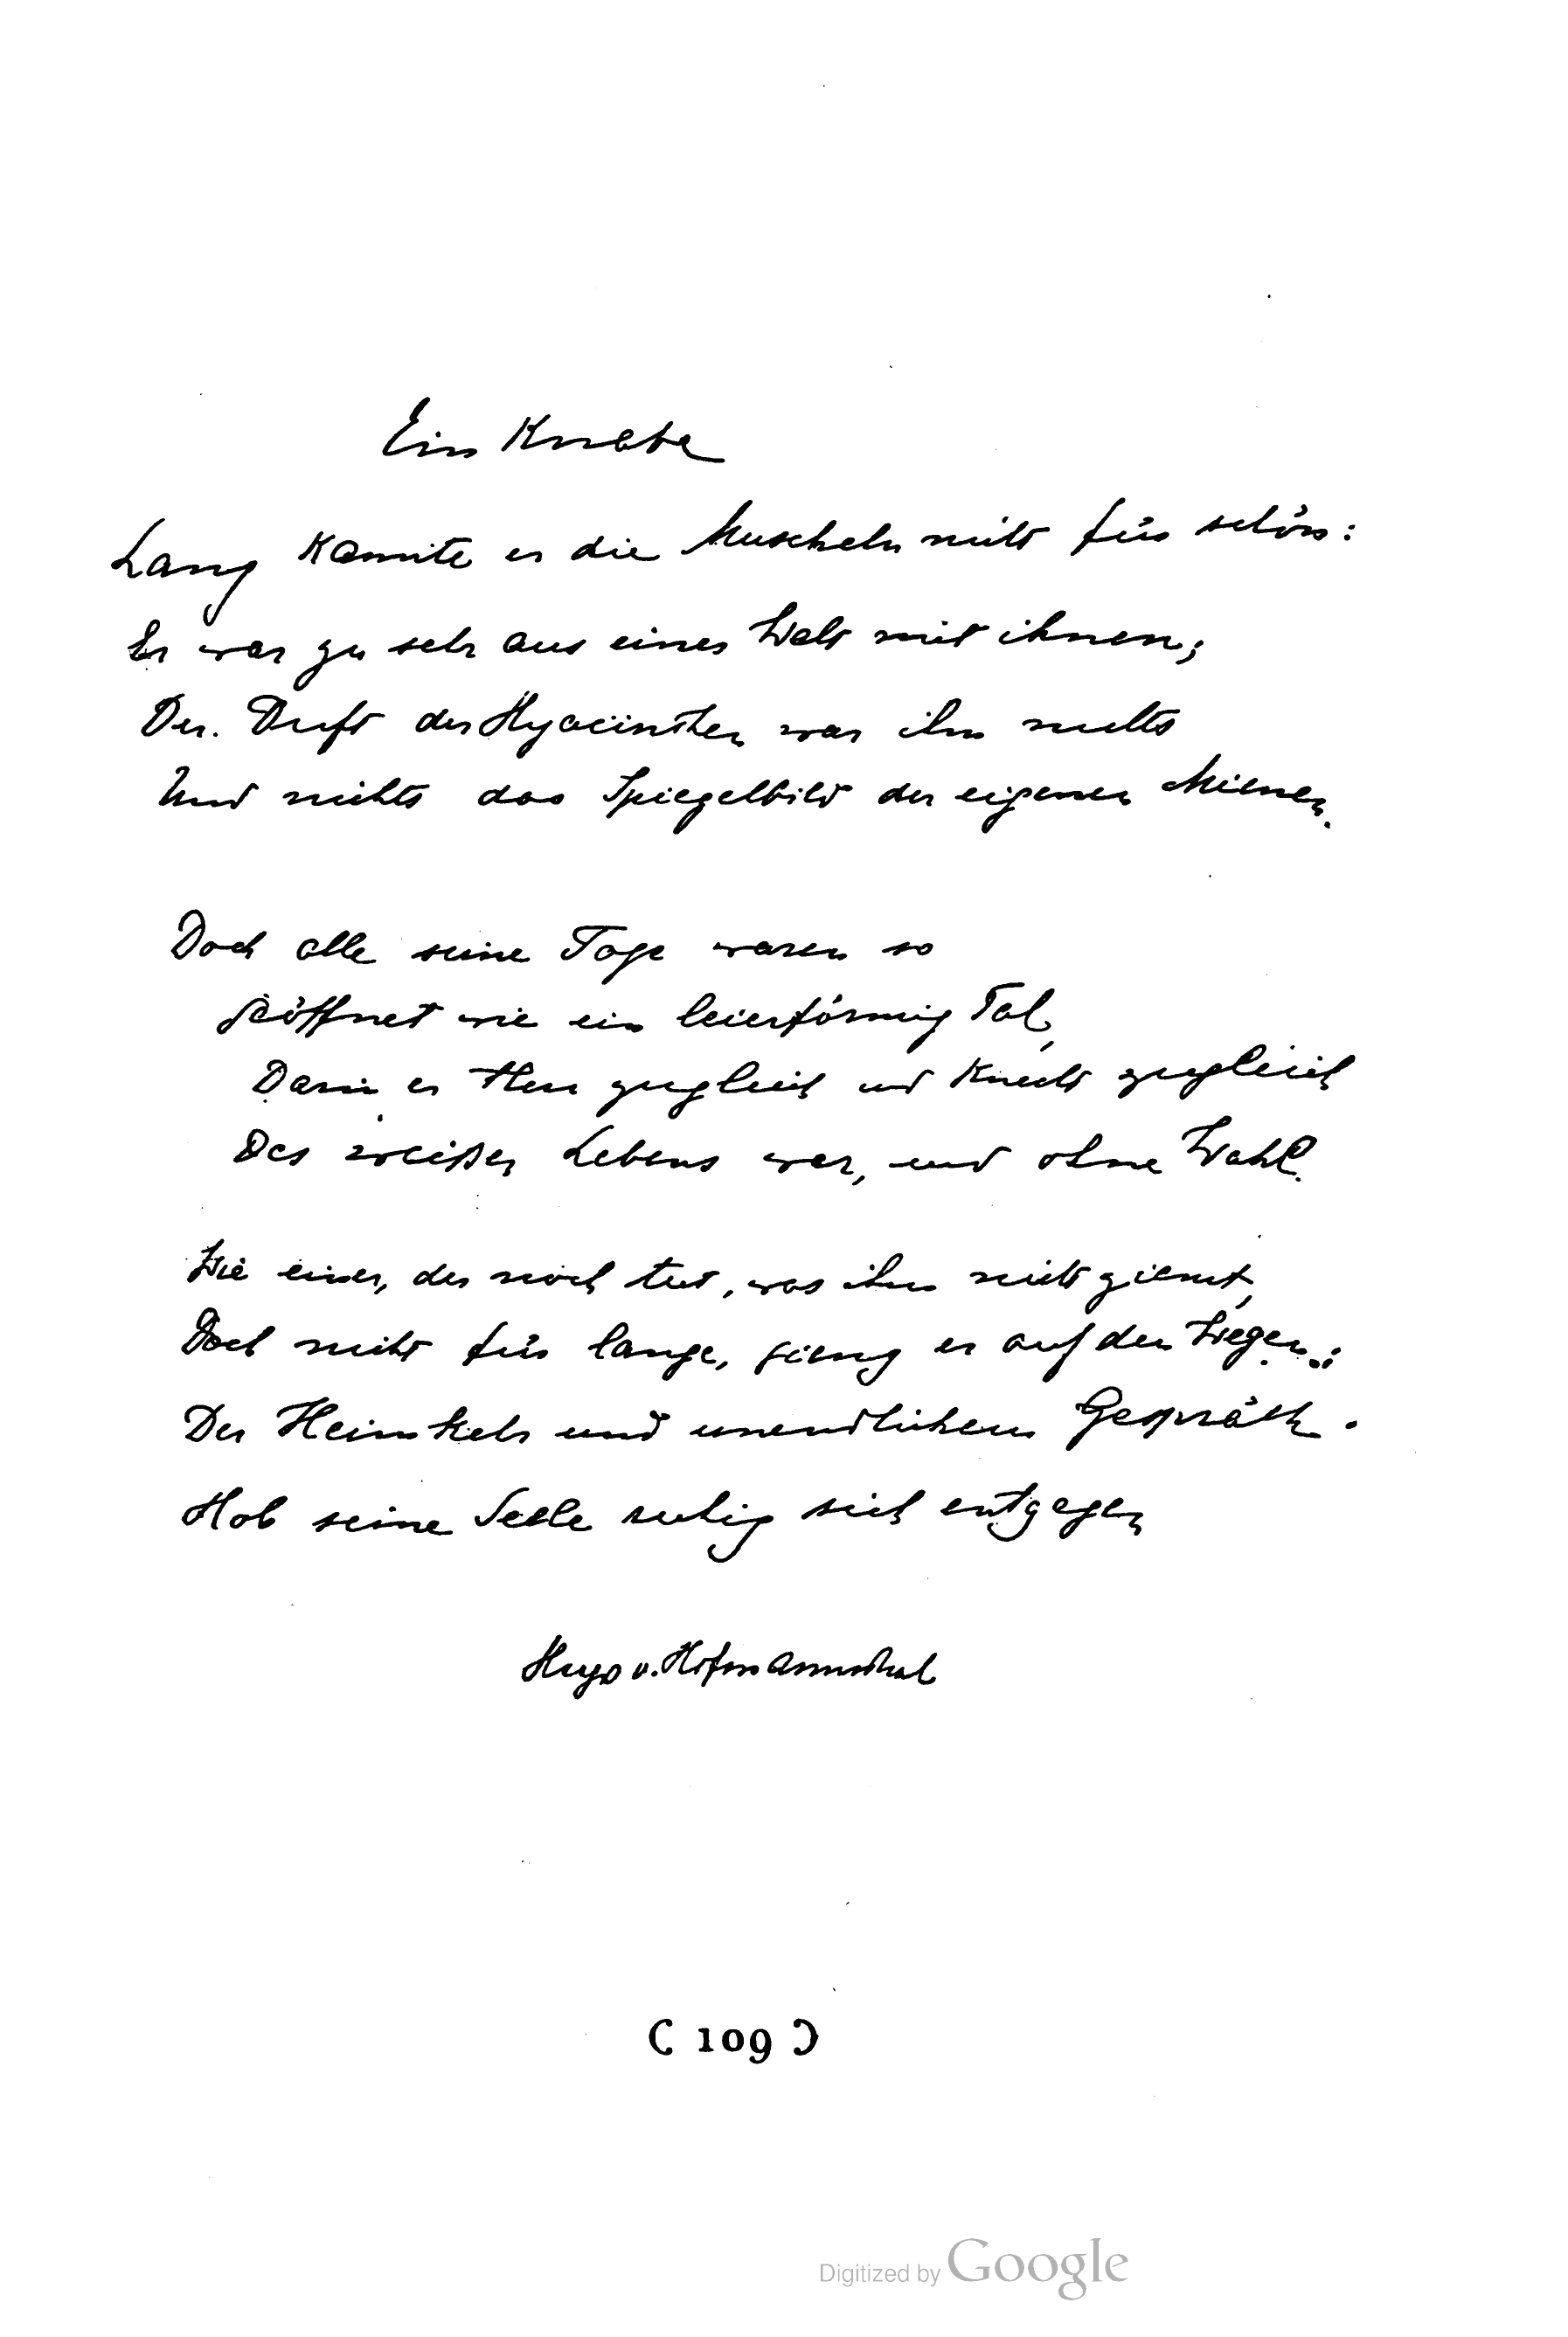 Ein Knabe
Lang kannte er die Muscheln nicht für schön:
Er war zu sehr aus einer Welt mit ihnen;
Der Duft der Hyacinthen war ihm nichts
Und nichts das Spiegelbild der eigenen Mienen.
Doch alle seine Tage waren so
Geöffnet wie ein leierförmig Tal,
Darin er Herr zugleich und Knecht zugleich
Des weißen Lebens war, und ohne Wahl.
Wie einer, der noch tut, was ihm nicht ziemt,
Doch nicht für lange, gieng er auf den Wegen:
Der Heimkehr und unendlichem Gespräch
Hob seine Seele ruhig sich entgegen
Hugo v. Hofmannsthal
( 109 )
Digitized by Google